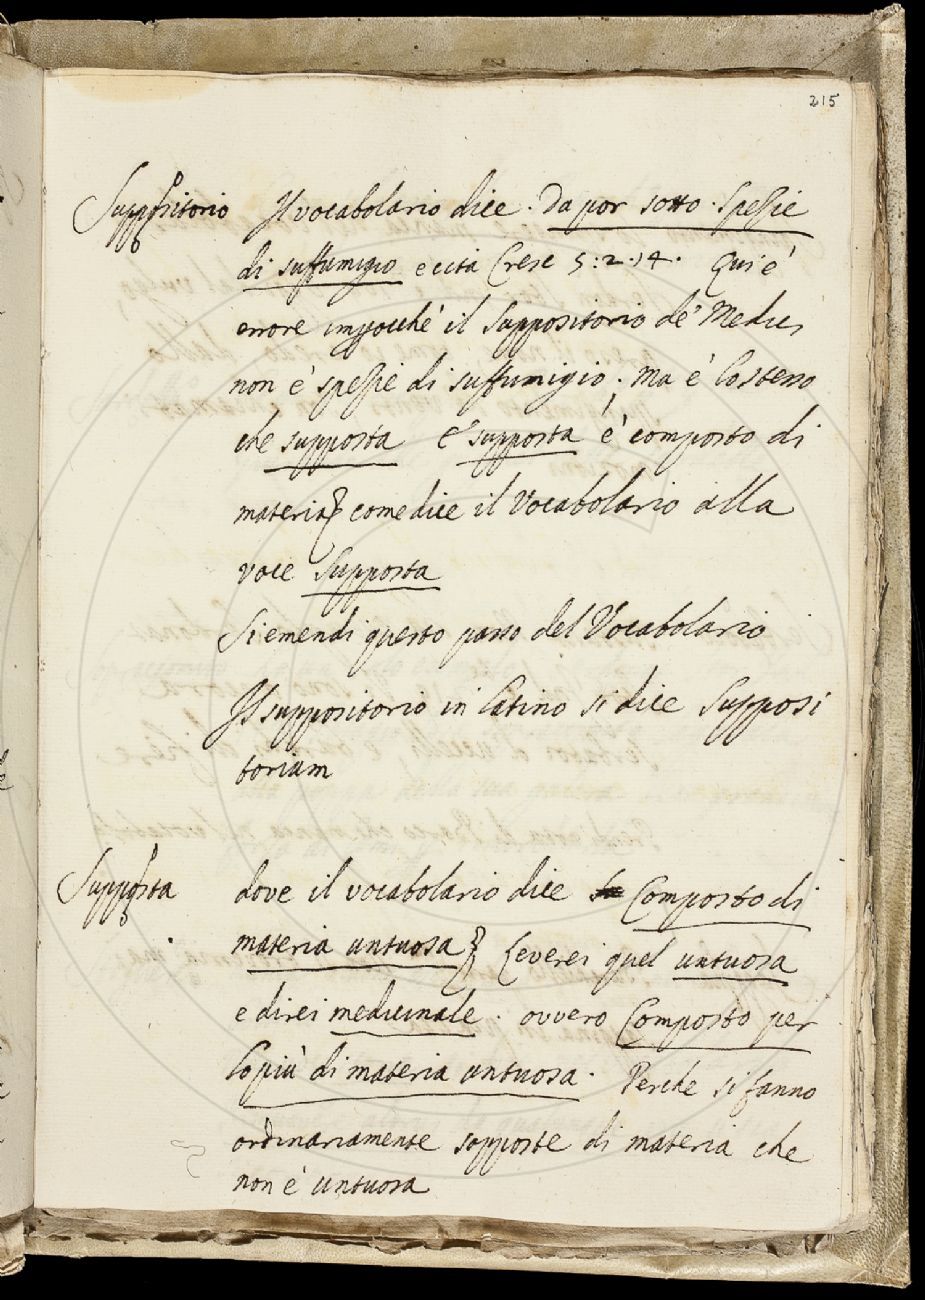 215
Suppositorio Il vocabolario dice. Da por sotto. Spezie
di suffumigio e cita Cresc 5:2.14. Qui è
errore impocchè il suppositorio de' Medici
non è spezie di suffumigio. Ma è lo stesso
che supposta e supposta è composto di
materia &c come dice il Vocabolario alla
voce Supposta
Si emendi questo passo del Vocabolario
Il suppositorio in Latino si dice Supposi
torium
Supposta dove il vocabolario dice Composto di
materia untuosa &c Leverei quel untuosa
e direi medicinale. ovvero Composto per
lo più di materia untuosa. Perche si fanno
ordinariamente sopposte di materia che
non è untuosa